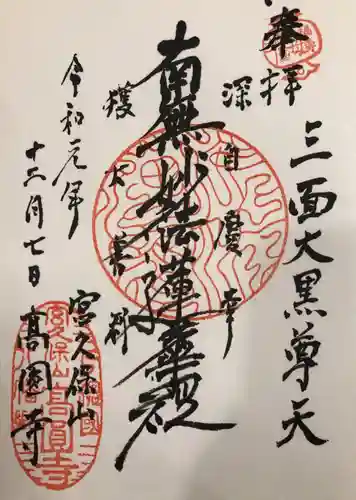 奉拝
三面大黒尊天
深自慶幸
南無妙法蓮華経
獲大善利
令和元年
十二月七日
宮久保山
高圓寺